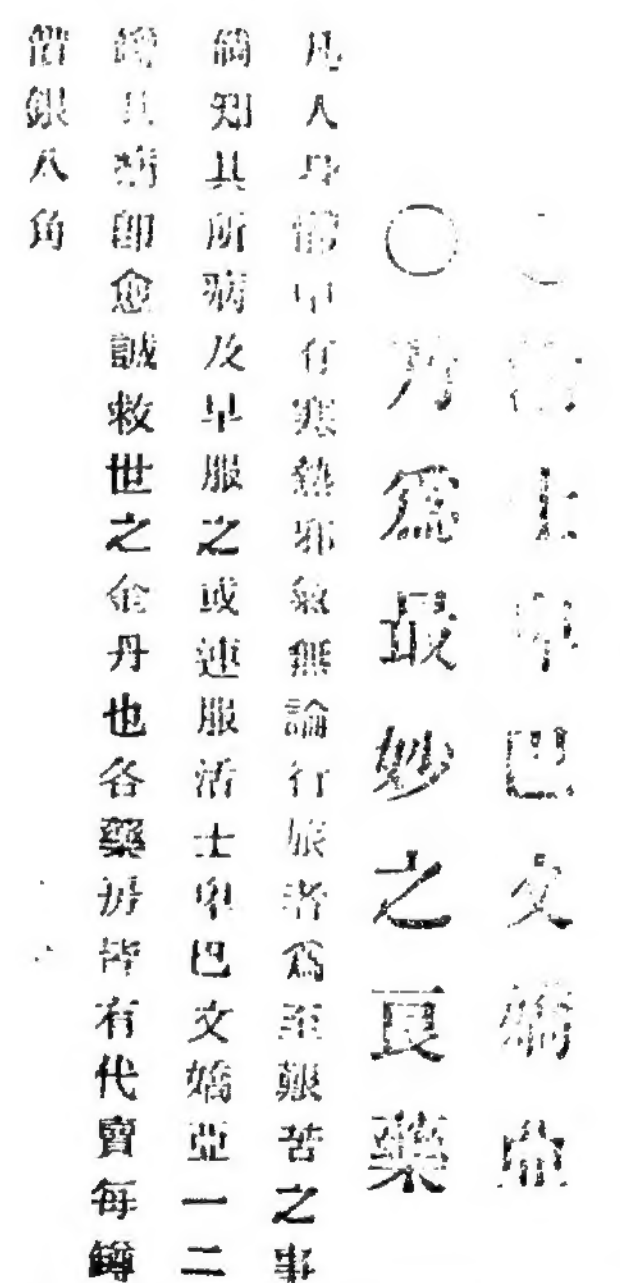 ○活士卑巴文嬌亞
○乃爲最妙之良藥
凡人身體中有寒熱邪氣無論行旅者爲至艱苦之事
倘知其所病及早服之或連服活士卑巴文嬌亞一二
罇其病卽愈誠救世之金丹也各藥房皆有代賣每罇
價銀八角